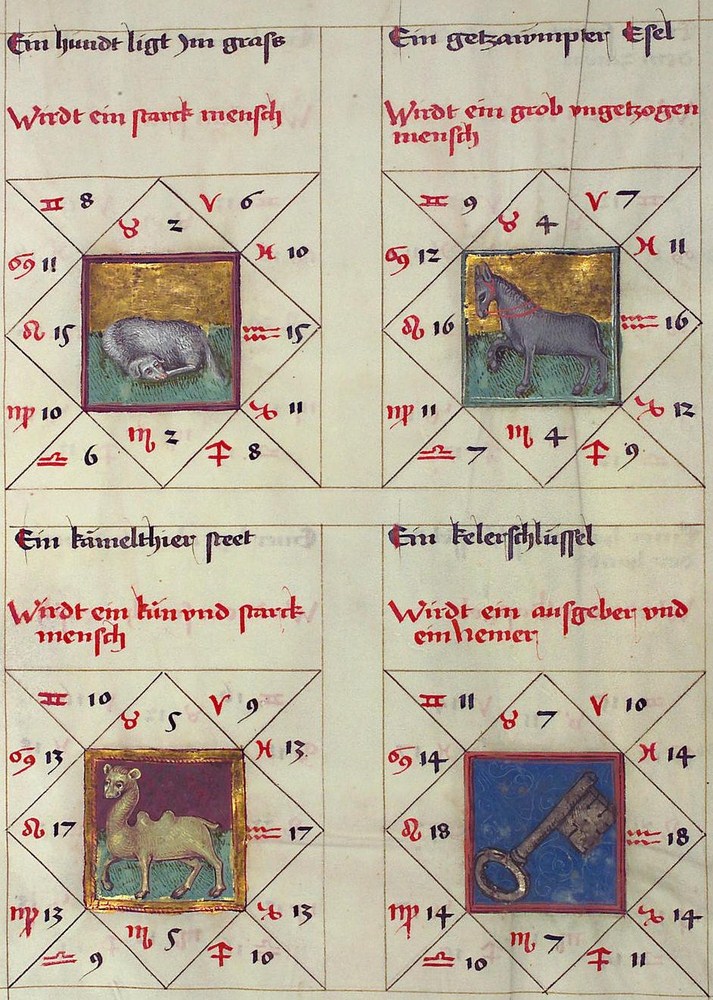 Ein hundt ligt Jm grass
Wirdt ein starck mensch
♊ 8
♉ 2
♈ 6
♋ 11
♓ 10
♌ 15
♒ 15
♍ 10
♑ 11
♎ 6
♏ 2
♐ 8
Ein getzawmpter Esel
Wirdt ein grob vngetzogen
mensch
♊ 9
♉ 4
♈ 7
♋ 12
♓ 11
♌ 16
♒ 16
♍ 11
♑ 12
♎ 7
♏ 4
♐ 9
Ein kämelthier steet
Wirdt ein kün vnd starck
mensch
♊ 10
♉ 5
♈ 9
♋ 13
♓ 13
♌ 17
♒ 17
♍ 13
♑ 13
♎ 9
♏ 5
♐ 10
Ein kelerschlüssel
Wirdt ein ausgeber vnd
ein nemer
♊ 11
♉ 7
♈ 10
♋ 14
♓ 14
♌ 18
♒ 18
♍ 14
♑ 14
♎ 10
♏ 7
♐ 11